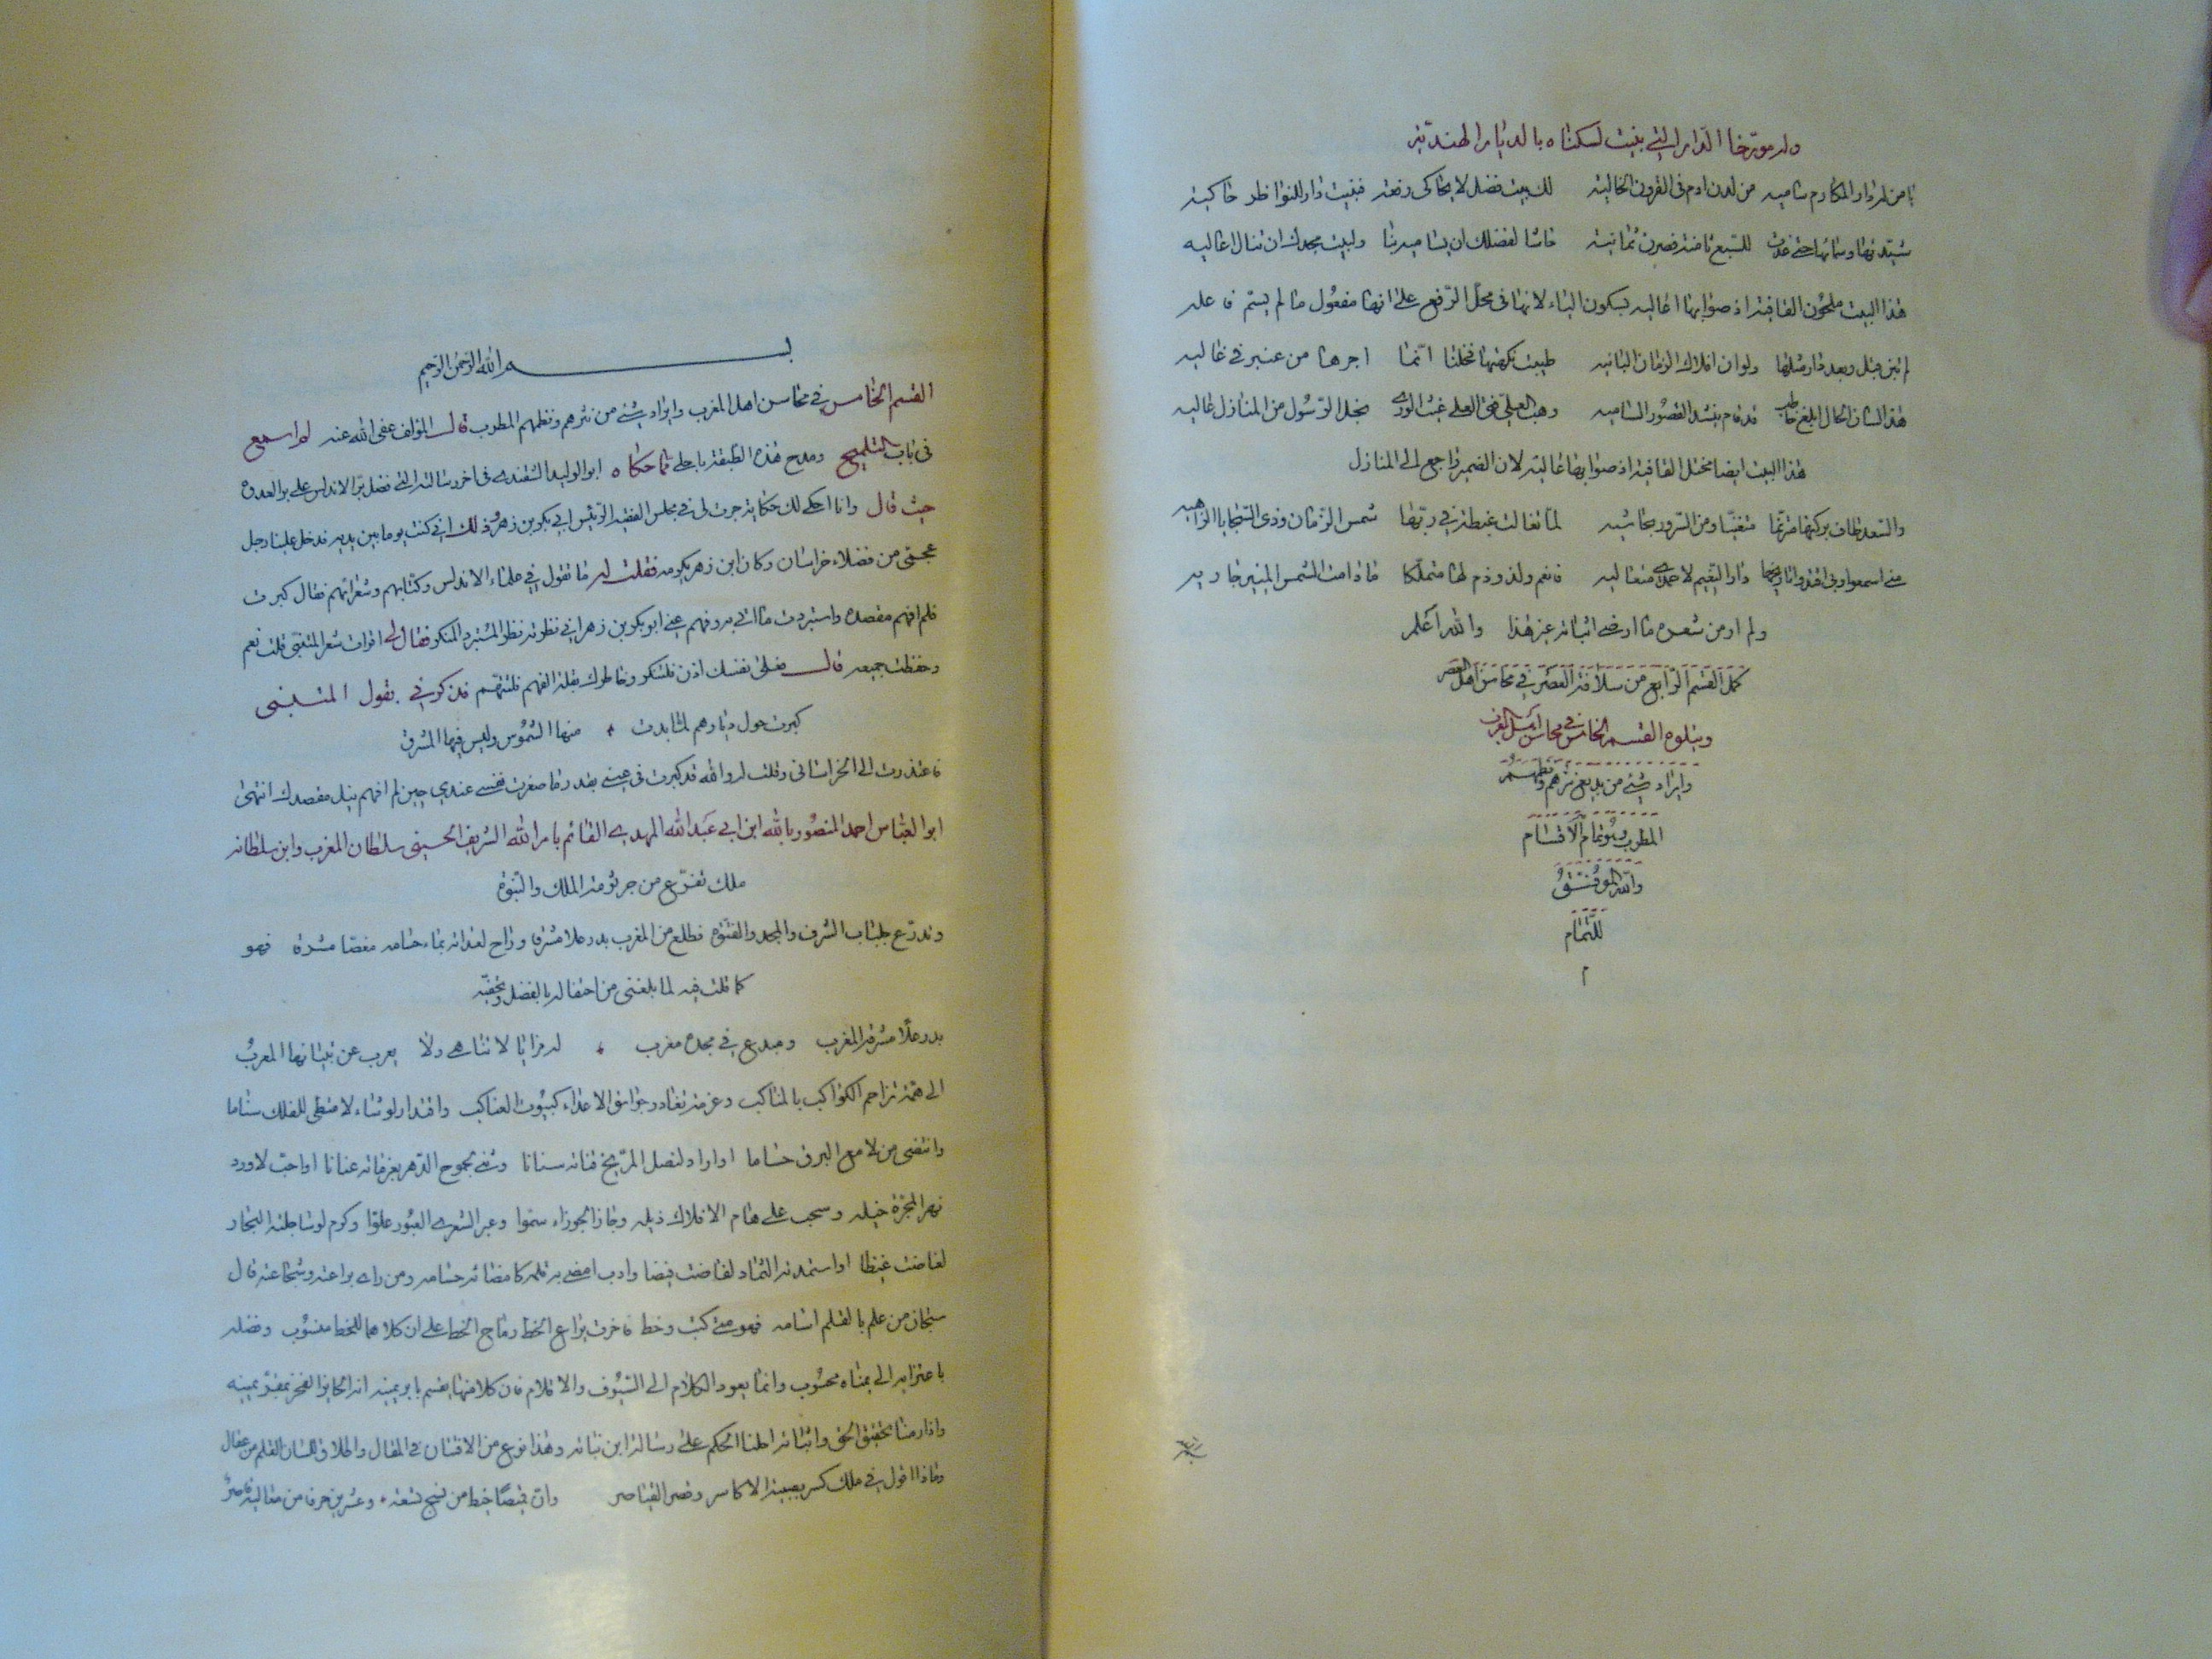 وله مورخا الدار التي بنيت لسكناه بالديار الهندية
يا من له دار المكارم ساميه من لدن ادم في القرون الخاليه لك بيت فضل لا يحاكى رفعة فبنيت دارا للنواظر حاكيه
شيدتها وسمائها حتى غدت للسبع ثامنة فصرن ثمانية حاشا لفضلك ان يساميه بنا ولبيت مجدك ان تنال اعاليه
هذا البيت ملحون القافية اذ صوابها اعاليه بسكون الياء لانها في محل الرفع على انها مفعول ما لم يسم فاعله
لم تبن قبل وبعد دار مثلها ولو ان افلاك الزمان البانيه طيبت نكهتها فخلنا انما اجرها من عنبر في غاليه
هذا لسان الحال ابلغ خاطب قد قام ينشد القصور الساميه وهب العلي فتى العلي غيث الورى نجل الرسول من المنازل عاليه
هذا البيت ايضا مختل القافية اذ صوابها عالية لان الضمير راجع الى المنازل
والسعد طاف بركنها مترنما متغنيا ومن السرور بحاشيه لما تعالت غبطة في ربها شمس الزمان وذي السجايا الزاهيه
دار النعيم لاحمدي متعاليه فانعم ولذ ودم لها متملكا ما دامت الشمس المنيرة جاريه
ولم ار من شعره ما ارضى اثباته غير هذا والله اعلم
كمل القسم الرابع من سلافة العصر في محاسن اهل العصر
ويتلوه القسم الخامس في محاسن اهل المغرب
وايراد شيء من بديع نثرهم ونظمهم
المطرب وهو تمام الاقسام
والله الموفق
للتمام
م
بسم الله الرحمن الرحيم
القسم الخامس في محاسن اهل المغرب وايراد شيء من نثرهم ونظمهم المطرب قال المؤلف عفى الله عنه لم اسمع
في باب التلميح ومدح هذه الطبقة باحلى مما حكاه ابو الوليد الشقندي في اخر رسالته التي فضل بر الاندلس على بر العدوه
حيث قال وانا احكي لك حكاية جرت لي في مجلس الفقيه الرئيس ابي بكر بن زهر وذلك اني كنت يوما بين يديه فدخل علينا رجل
عجمي من فضلاء خراسان وكان ابن زهر يكرمه فقلت له ما تقول في علماء الاندلس وكتابهم وشعرائهم فقال كبرت
فلم افهم مقصده واستبردت ما اتى به وفهم عني ابو بكر بن زهر اني نظرته نظر المستبرد المنكر فقال لي اقرات شعر المتنبي قلت نعم
وحفظت جميعه قال فعلى نفسك اذن فلتنكر وخاطرك بقلة الفهم فلتتهم فذكرني بقول المتنبي
كبرت حول ديارهم لما بدت منها الشموس وليس فيها المشرق
فاعتذرت الى الخراساني وقلت له والله قد كبرت في عيني بقدر ما صغرت نفسي عندي حين لم افهم نبل مقصدك انتهى
ابو العباس احمد المنصور بالله ابن ابي عبد الله المهدي القائم بامر الله الشريف الحسيني سلطان المغرب وابن سلطانه
ملك تفرع من جرثومة الملك والنبوة
وتدرع جلباب الشرف والمجد والفتوه فطلع من المغرب بدر علا مشرقا وراح لعداته بماء حسامه مغصا مشرقا فهو
كما قلت فيه لما بلغني من احتفاله بالفضل وتحفيه
بدر علا مشرقه المغرب ومبدع في مجده مغرب له مزايا لا تناهى ولا يعرب عن تبيانها المعرب
الى همة تزاحم الكواكب بالمناكب وعزمة تغادر جوانق الاعداء كبيوت العناكب واقتدار لو شاء لامتطى للفلك سناما
وانتضى من لامع البرق حساما او اراد لنصل المريخ قناته سنانا وثنى لجموح الدهر بعزماته عنانا او احب لاورد
نهر المجرة خيله وسحب على هام الافلاك ذيله وجاز الجوزاء سموا وعبر الشعرى العبور علوا وكرم لو ساجلته البحار
لغاضت غيظا او استمدته الثماد لفاضت فيضا وادب امضى به قلمه كامضائه حسامه ومن راى براعته وشجاعته قال
سبحان من علم بالقلم اسامه فهو متى كتب وخط فاخرت يراع الخط رماح الخط على ان كلاهما للخط منسوب وفضله
باعتزائه الى يمناه محسوب وانما يعود الكلام الى السيوف والاقلام فان كلا منها يقسم باريه انه الحائز الفخر بمقبر يمينه
واذا رمنا تحقيق الحق واثباته احلنا الحكم على رسالة ابن نباته وهذا نوع من الافتنان في المقال واطلاق للسان القلم من عقال
وماذا اقول في ملك كسر بهيبته الاكاسر وقصر القياصر وان قميصا خيط من نسج تسعة وعشرين حرفا من معاليه قاصر